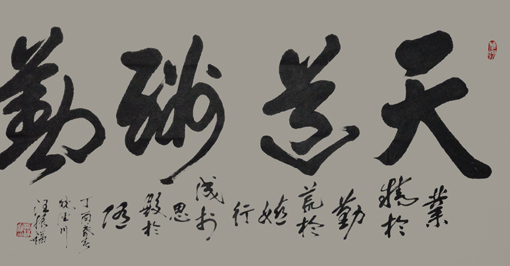 天道酬勤
業
精於
勤
荒於
嬉
行
成於
思
毀於
随
丁酉春